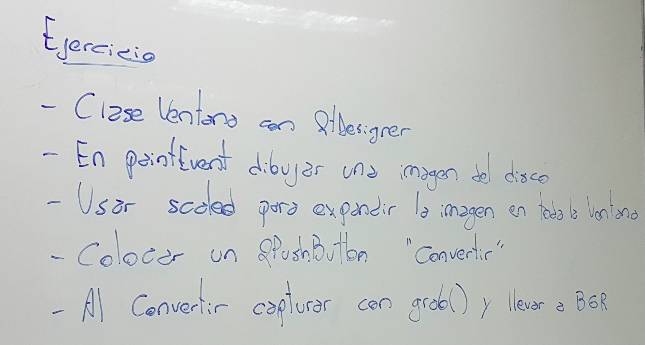 Ejercicio
- Clase Ventana con QtDesigner
- En paintEvent dibujar una imagen del disco
- Usar scaled para expandir la imagen en toda la ventana
- Colocar un QPushButton "Convertir"
- Al Convertir capturar con grab() y llevar a BGR